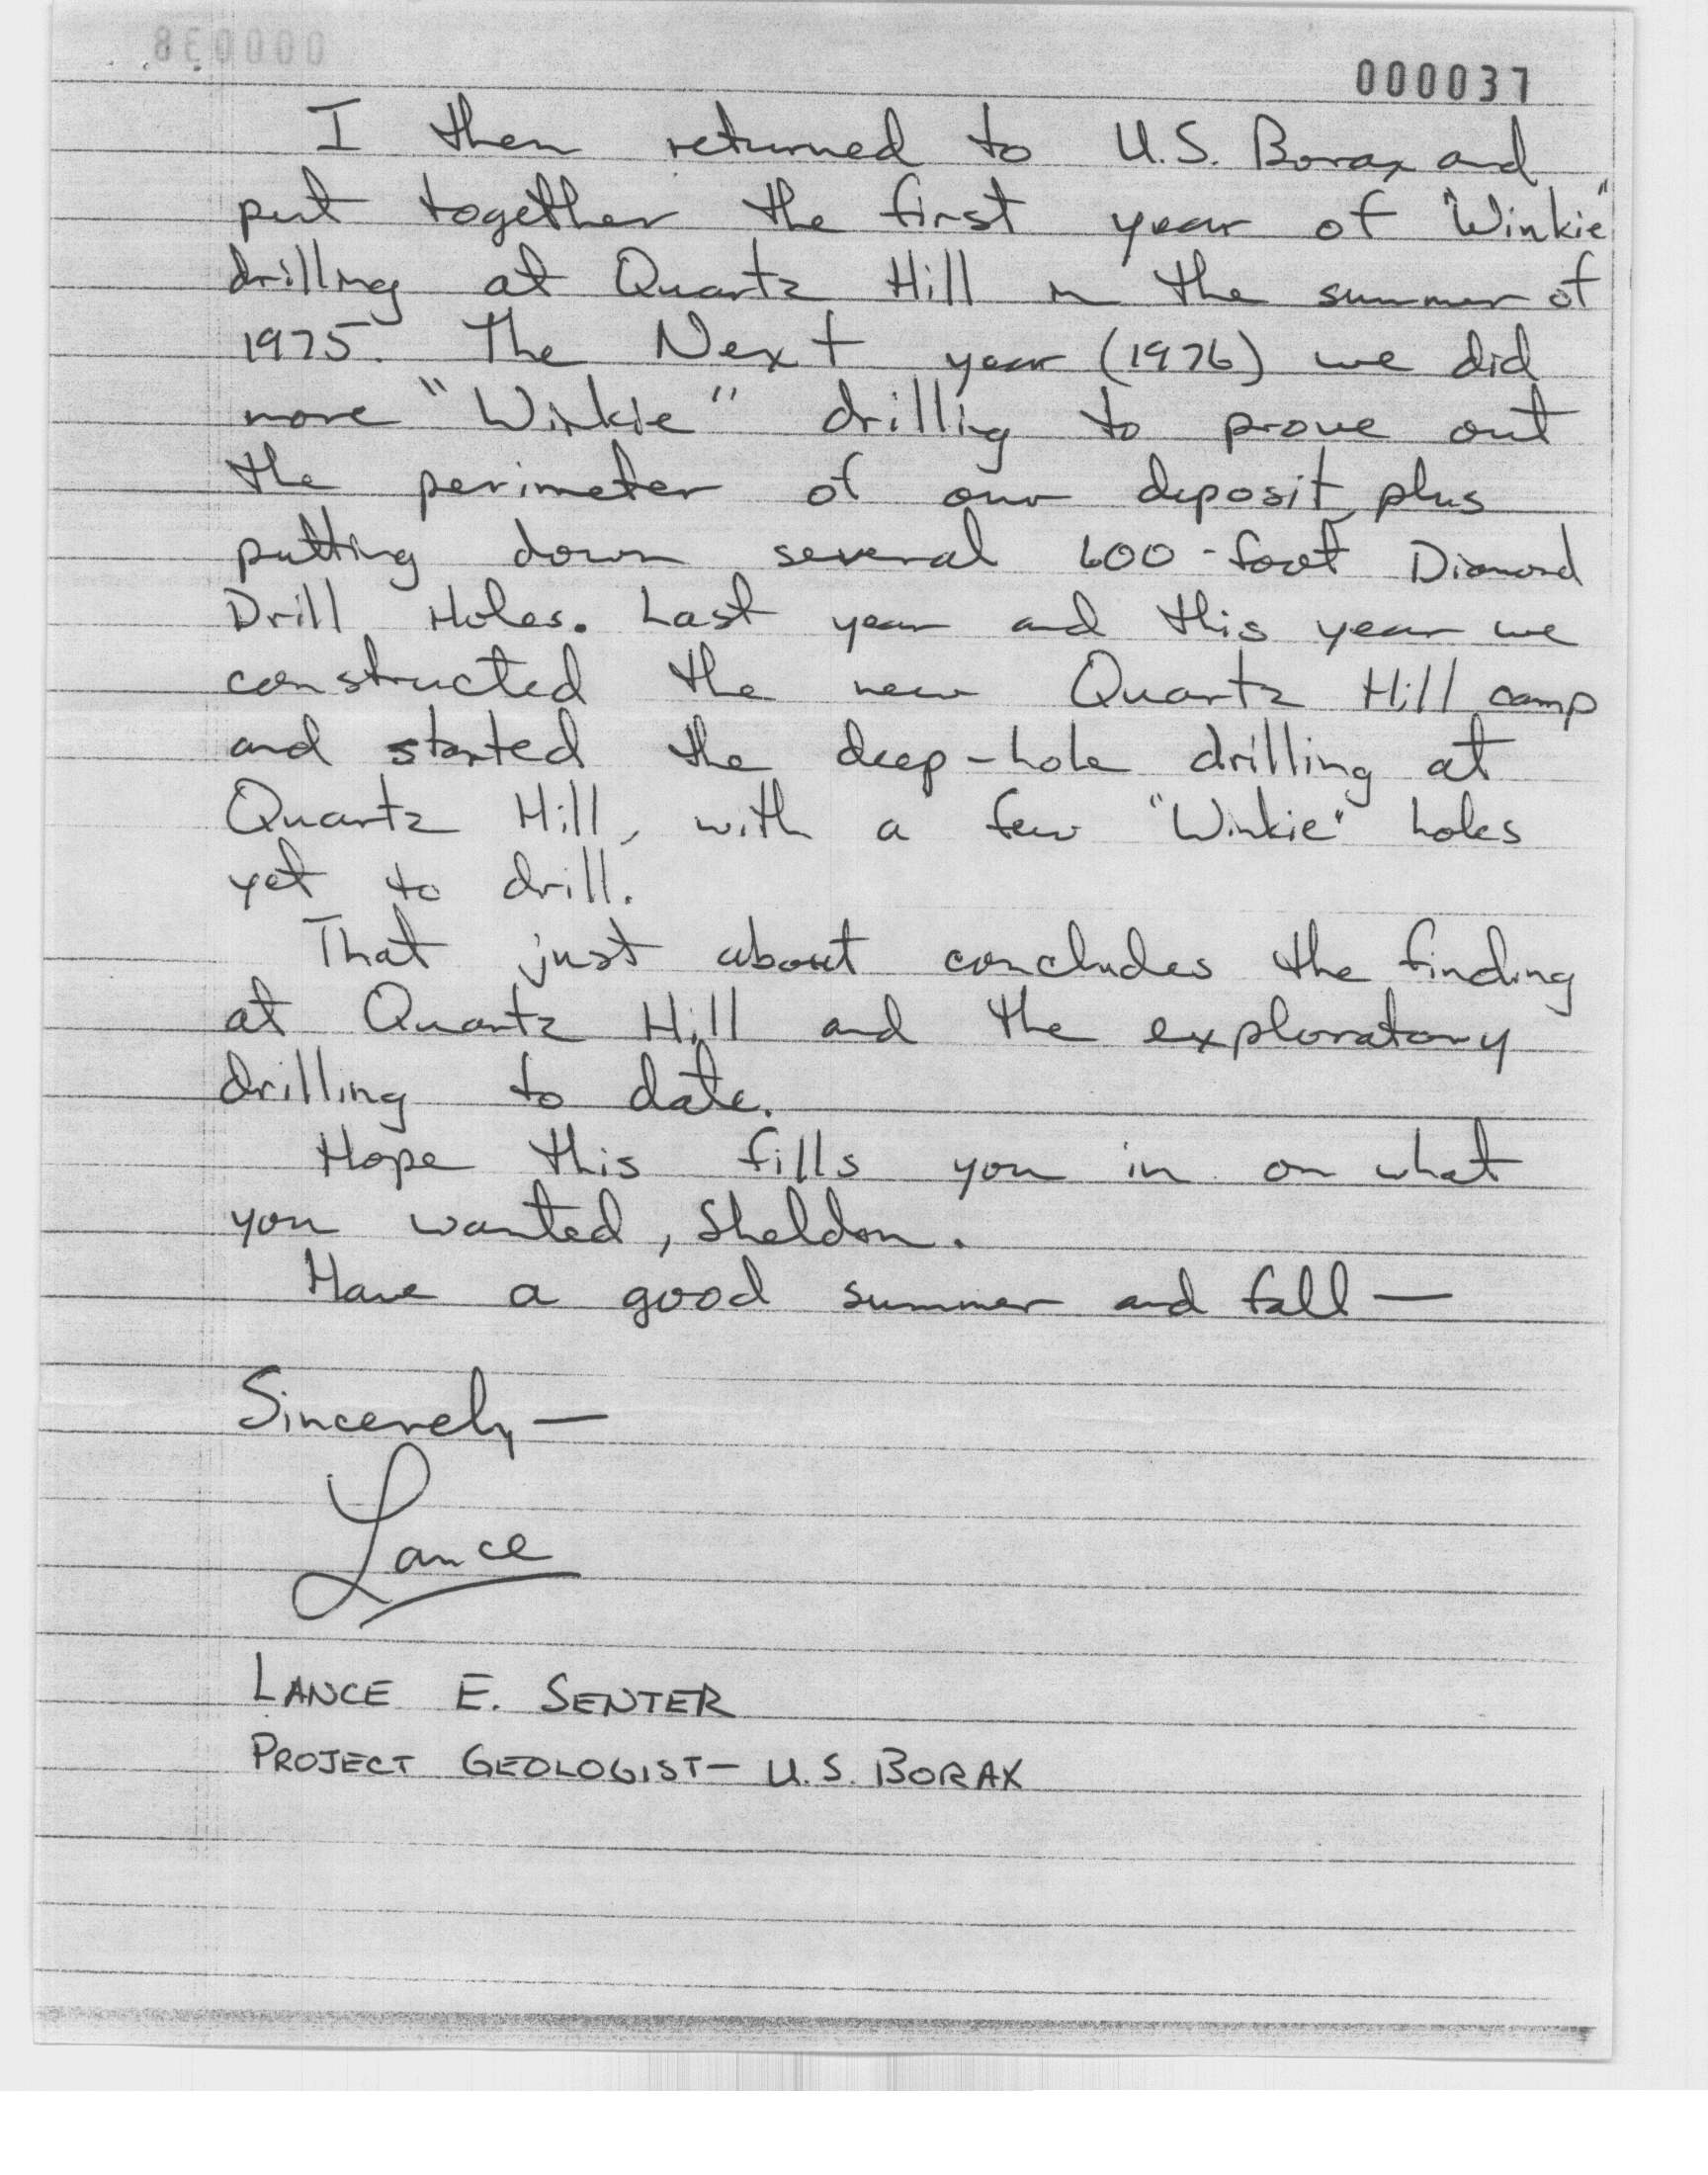 000038
000037
I then returned to U.S. Borax and
put together the first year of "Winkie"
drilling at Quartz Hill in the summer of
1975. The Next year (1976) we did
more "Winkie" drilling to prove out
the perimeter of our deposit, plus
putting down several 600-foot Diamond
Drill Holes. Last year and this year we
constructed the new Quartz Hill camp
and started the deep-hole drilling at
Quartz Hill, with a few "Winkie" holes
yet to drill.
That just about concludes the finding
at Quartz Hill and the exploratory
drilling to date.
Hope this fills you in on what
you wanted, Sheldon.
Have a good summer and fall—
Sincerely—
Lance
LANCE E. SENTER
PROJECT GEOLOGIST— U.S. BORAX